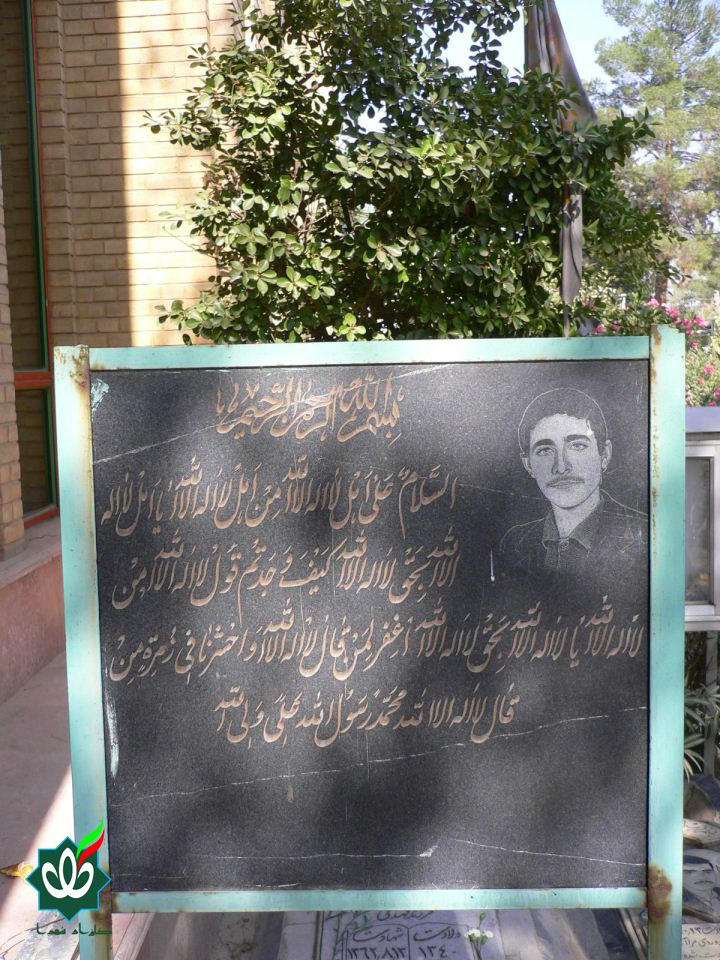 بسم الله الرحمن الرحیم
السَّلامُ عَلیٰ اَهْلِ لااِلهَ اِلاَّ اللّٰه مِنْ اَهْلِ لااِلهَ اِلاَّ اللّٰه یا اَهْلَ لااِله
اِلاَّ اللّٰه بِحَقِّ لااِلهَ اِلاَّ اللّٰه کَیْفَ وَجَدْتُم قَوْلَ لااِلهَ اِلاَّ اللّٰه مِنْ
لااِلهَ اِلاَّ اللّٰه یا لااِلهَ اِلاَّ اللّٰه بِحَقِّ لااِلهَ اِلاَّ اللّٰه اغْفِر لِمَنْ قٰالَ لااِلهَ اِلاَّ اللّٰه وَاحْشُرْنا فی زُمْرَةِ مَنْ
قٰالَ لااِلهَ اِلاَّ اللّٰه مُحَمَّد رَسُولُ اللّٰه عَلی وَلِی اللّٰه
ولادت ۱۳۴۰
شهادت ۱۳۶۲٫۸٫۱۳